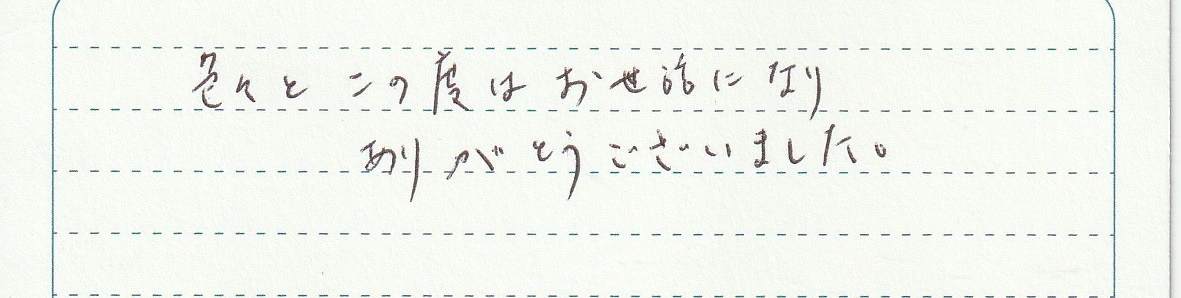 色々と この度は お世話になり
ありがとうございました。